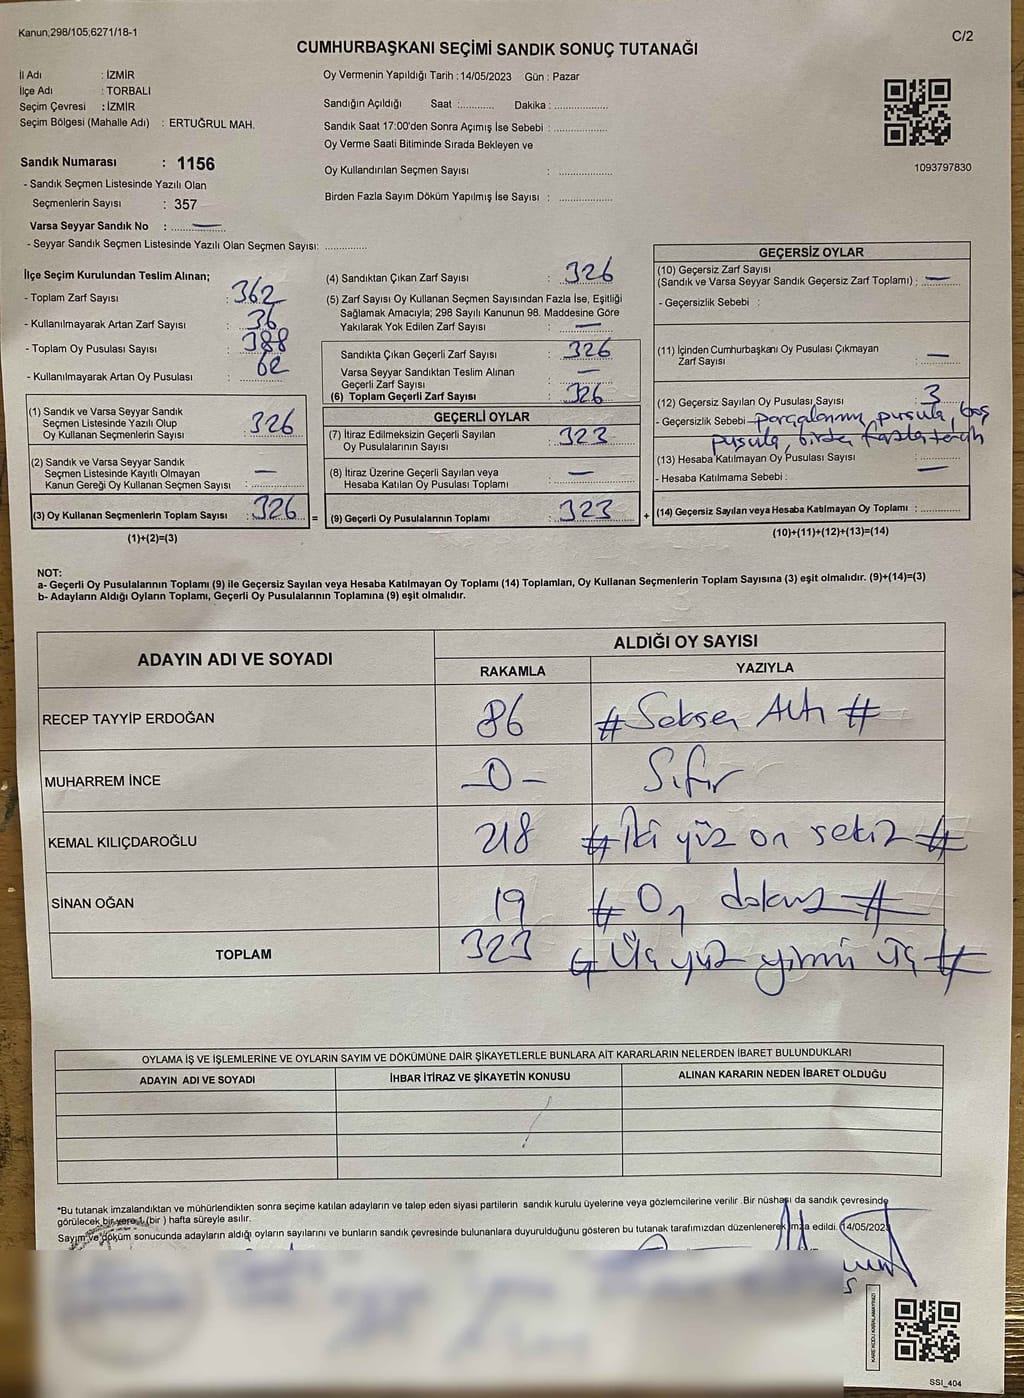 Kanun,298/105;6271/18-1
C/2
CUMHURBAŞKANI SEÇİMİ SANDIK SONUÇ TUTANAĞI
İl Adı : İZMİR
İlçe Adı : TORBALI
Seçim Çevresi : İZMİR
Seçim Bölgesi (Mahalle Adı) : ERTUĞRUL MAH.
Sandık Numarası : 1156
- Sandık Seçmen Listesinde Yazılı Olan
Seçmenlerin Sayısı : 357
Varsa Seyyar Sandık No : —
- Seyyar Sandık Seçmen Listesinde Yazılı Olan Seçmen Sayısı: ............
Oy Vermenin Yapıldığı Tarih : 14/05/2023 Gün : Pazar
Sandığın Açıldığı Saat :.......... Dakika : ...............
Sandık Saat 17:00'den Sonra Açımış İse Sebebi : ...............
Oy Verme Saati Bitiminde Sırada Bekleyen ve
Oy Kullandırılan Seçmen Sayısı : ...............
Birden Fazla Sayım Döküm Yapılmış İse Sayısı : ...............
1093797830
İlçe Seçim Kurulundan Teslim Alınan;
- Toplam Zarf Sayısı : 362
- Kullanılmayarak Artan Zarf Sayısı : 36
- Toplam Oy Pusulası Sayısı : 388
- Kullanılmayarak Artan Oy Pusulası : 62
(1) Sandık ve Varsa Seyyar Sandık
Seçmen Listesinde Yazılı Olup
Oy Kullanan Seçmenlerin Sayısı : 326
(2) Sandık ve Varsa Seyyar Sandık
Seçmen Listesinde Kayıtlı Olmayan
Kanun Gereği Oy Kullanan Seçmen Sayısı : —
(3) Oy Kullanan Seçmenlerin Toplam Sayısı : 326
(1)+(2)=(3)
(4) Sandıktan Çıkan Zarf Sayısı : 326
(5) Zarf Sayısı Oy Kullanan Seçmen Sayısından Fazla İse, Eşitliği
Sağlamak Amacıyla; 298 Sayılı Kanunun 98. Maddesine Göre
Yakılarak Yok Edilen Zarf Sayısı : —
Sandıkta Çıkan Geçerli Zarf Sayısı : 326
Varsa Seyyar Sandıktan Teslim Alınan
Geçerli Zarf Sayısı : —
(6) Toplam Geçerli Zarf Sayısı : 326
GEÇERLİ OYLAR
(7) İtiraz Edilmeksizin Geçerli Sayılan
Oy Pusulalarının Sayısı : 323
(8) İtiraz Üzerine Geçerli Sayılan veya
Hesaba Katılan Oy Pusulası Toplamı : —
= (9) Geçerli Oy Pusulalarının Toplamı : 323
GEÇERSİZ OYLAR
(10) Geçersiz Zarf Sayısı
(Sandık ve Varsa Seyyar Sandık Geçersiz Zarf Toplamı) : —
- Geçersizlik Sebebi :
(11) İçinden Cumhurbaşkanı Oy Pusulası Çıkmayan
Zarf Sayısı : —
(12) Geçersiz Sayılan Oy Pusulası Sayısı : 3
- Geçersizlik Sebebi parçalanmış pusula, boş
pusula, birden fazla tercih
(13) Hesaba Katılmayan Oy Pusulası Sayısı : ............
- Hesaba Katılmama Sebebi : —
+ (14) Geçersiz Sayılan veya Hesaba Katılmayan Oy Toplamı : ............
(10)+(11)+(12)+(13)=(14)
NOT:
a- Geçerli Oy Pusulalarının Toplamı (9) ile Geçersiz Sayılan veya Hesaba Katılmayan Oy Toplamı (14) Toplamları, Oy Kullanan Seçmenlerin Toplam Sayısına (3) eşit olmalıdır. (9)+(14)=(3)
b- Adayların Aldığı Oyların Toplamı, Geçerli Oy Pusulalarının Toplamına (9) eşit olmalıdır.
ADAYIN ADI VE SOYADI
ALDIĞI OY SAYISI
RAKAMLA YAZIYLA
RECEP TAYYİP ERDOĞAN 86 # Seksen Altı #
MUHARREM İNCE -0- Sıfır
KEMAL KILIÇDAROĞLU 218 # İki yüz on sekiz #
SİNAN OĞAN 19 # On dokuz #
TOPLAM 323 # Üç yüz yirmi üç #
OYLAMA İŞ VE İŞLEMLERİNE VE OYLARIN SAYIM VE DÖKÜMÜNE DAİR ŞİKAYETLERLE BUNLARA AİT KARARLARIN NELERDEN İBARET BULUNDUKLARI
ADAYIN ADI VE SOYADI İHBAR İTİRAZ VE ŞİKAYETİN KONUSU ALINAN KARARIN NEDEN İBARET OLDUĞU
*Bu tutanak imzalandıktan ve mühürlendikten sonra seçime katılan adayların ve talep eden siyasi partilerin sandık kurulu üyelerine veya gözlemcilerine verilir .Bir nüshası da sandık çevresinde
görülecek bir yere 1 (bir ) hafta süreyle asılır.
Sayım ve döküm sonucunda adayların aldığı oyların sayılarını ve bunların sandık çevresinde bulunanlara duyurulduğunu gösteren bu tutanak tarafımızdan düzenlenerek imza edildi. (14/05/2023
KARE KODU KARALAMAYINIZ!
SSI_404